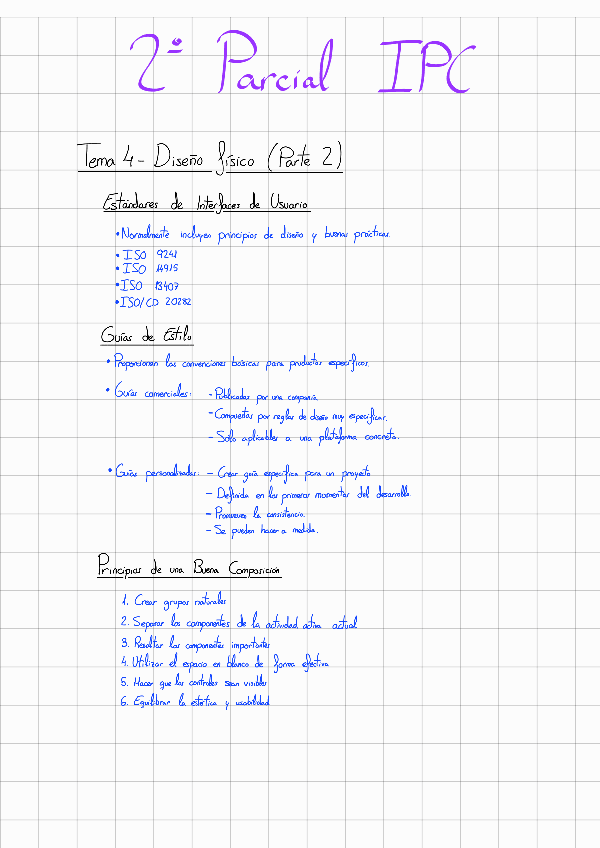 2º Parcial IPC
Tema 4 - Diseño físico (Parte 2)
Estándares de Interfaces de Usuario
• Normalmente incluyen principios de diseño y buenas prácticas.
• ISO 9241
• ISO 14915
• ISO 13407
• ISO/CD 20282
Guías de Estilo
• Proporcionan las convenciones básicas para productos específicos.
• Guías comerciales: - Publicadas por una compañía.
- Compuestas por reglas de diseño muy específicas.
- Solo aplicables a una plataforma concreta.
• Guías personalizadas: - Crear guía específica para un proyecto
- Definida en los primeros momentos del desarrollo.
- Promueven la consistencia.
- Se pueden hacer a medida.
Principios de una Buena Composición
1. Crear grupos naturales
2. Separar los componentes de la actividad activa actual
3. Resaltar los componentes importantes
4. Utilizar el espacio en blanco de forma efectiva
5. Hacer que los controles sean visibles
6. Equilibrar la estética y usabilidad